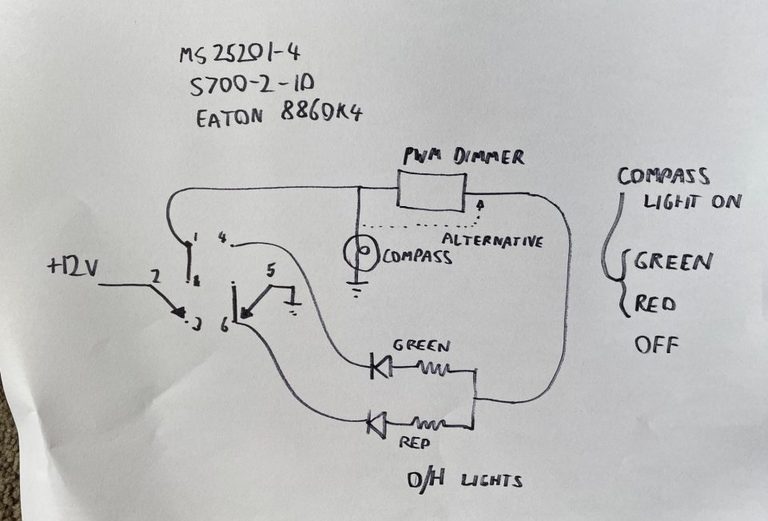 MS 25201-4
S700-2-1D
EATON 8860K4
PWM DIMMER
COMPASS
LIGHT ON
1 4
ALTERNATIVE
COMPASS
+12V
2
5
GREEN
RED
3 6
OFF
GREEN
RED
O/H LIGHTS